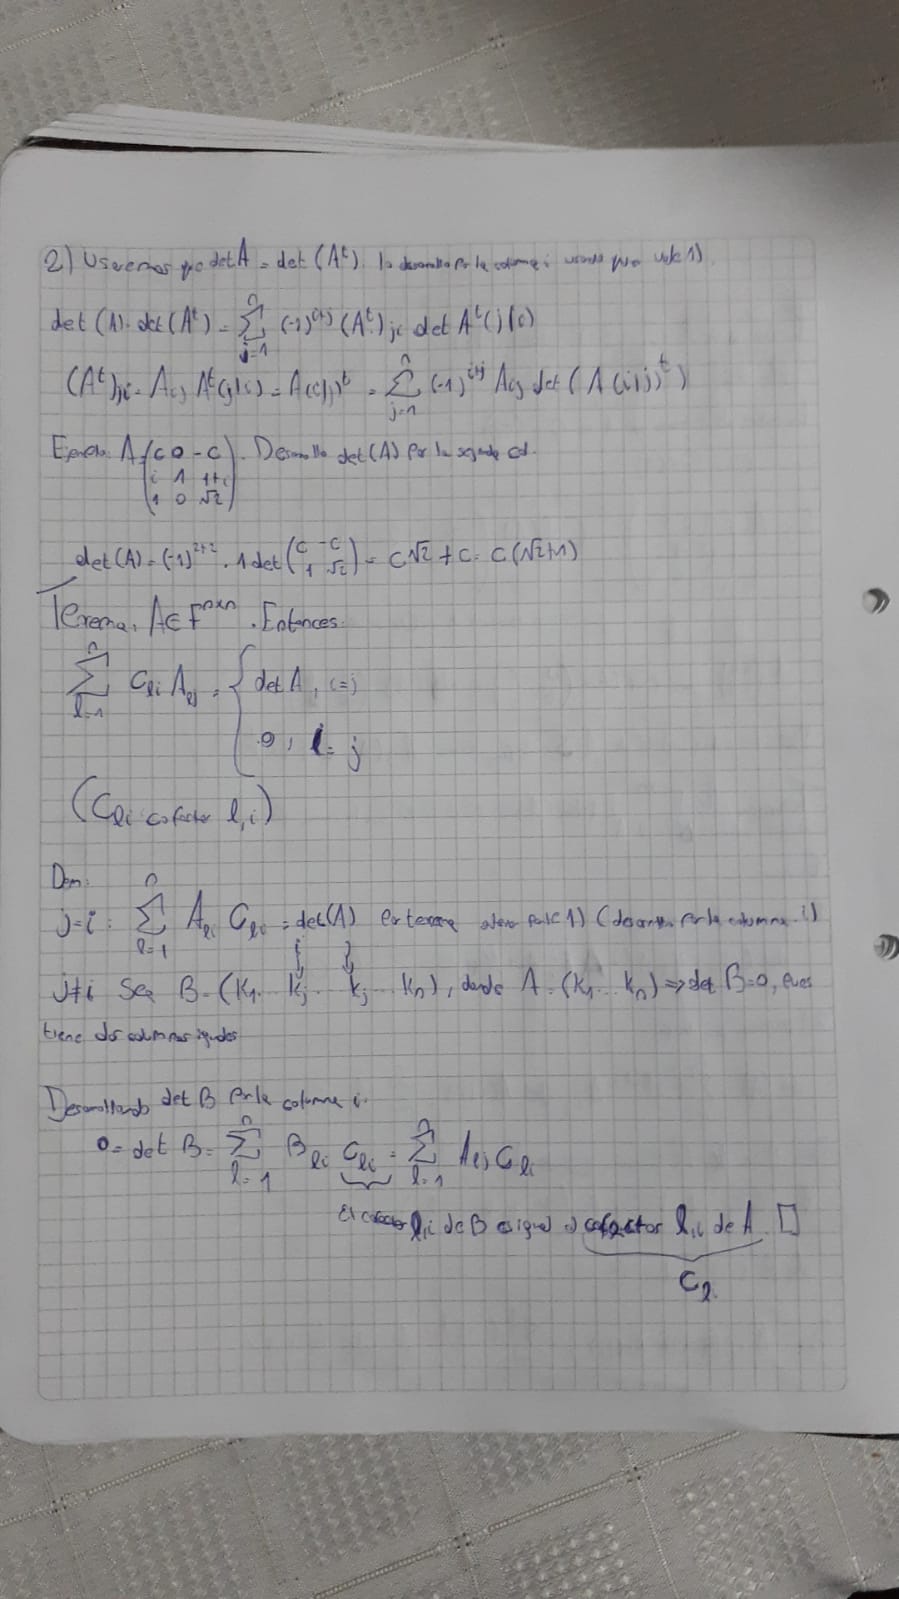 2) Usaremos que det A = det (Aᵗ). lo desarrollo por la columna i usando que vale 1)
det (A) = det (Aᵗ) = Σ_{j=1}^{n} (-1)^{i+j} (Aᵗ)ji det Aᵗ(j|i)
(Aᵗ)ji = Aij Aᵗ(j|i) = A(i|j)ᵗ = Σ_{j=1}^{n} (-1)^{i+j} Aij det (A(i|j)ᵗ)
Ejemplo: A = (i 0 -i). Desarrollo det (A) por la segunda col.
(i 1 1+i)
(1 0 √2)
det (A) = (-1)^{2+2} . 1 det (i -i / 1 √2) = i√2 + i = i(√2+1)
Teorema, A ∈ F^{nxn}. Entonces.
Σ_{l=1}^{n} Cli Alj = { det A, i=j
0, i = j
(Cli cofactor l,i)
Dem:
j=i : Σ_{l=1}^{n} Ali Cli = det(A) por teorema parte 1) (desarrollo por la columna i)
j≠i Sea B = (K1 ... Kj ... Kj ... Kn), donde A = (K1 ... Kn) => det B=0, pues
tiene dos columnas iguales
Desarrollando det B por la columna i.
0 = det B = Σ_{l=1}^{n} Bli Cli = Σ_{l=1}^{n} Alj Cli
El cofactor l,i de B es igual al cofactor l,i de A. □
C2